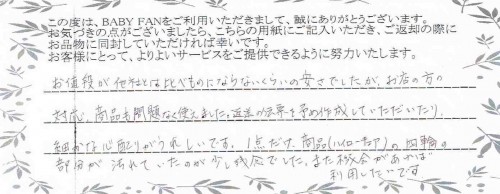 この度は、BABY FANをご利用いただきまして、誠にありがとうございます。
お気づきの点がございましたら、こちらの用紙にご記入いただき、ご返却の際に
お品物に同封していただければ幸いです。
お客様にとって、よりよいサービスをご提供できるように努力いたします。
お値段が他社とは比べものにならないくらいの安さでしたが、お店の方の
対応、商品も問題なく使えました。返送の伝票を予め作成していただいたり、
細かな心配りがうれしいです。1点だけ、商品(ハイローチェア)の四輪の
部分が汚れていたのが少し残念でした。また機会があれば
利用したいです